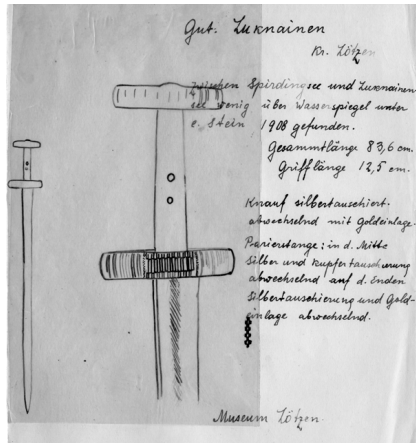 Gut. Luknainen
Kr. Lötzen
zwischen Spirdingsee und Luknainen
see wenig über Wasserspiegel unter
e. Stein 1908 gefunden.
Gesammtlänge 83,6 cm.
Grifflänge 12,5 cm.
Knauf silbertauschiert
abwechselnd mit Goldeinlage.
Parierstange: in d. Mitte
Silber und Kupfertauschierung
abwechselnd auf d. Enden
Silbertauschierung und Gold-
einlage abwechselnd.
Museum Lötzen